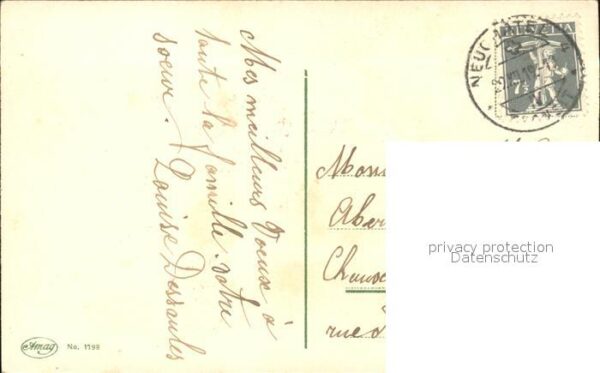 Mes meilleurs voeux à
toute la famille. votre
soeur.
Louise Dessaules
NEUCHATEL
HELVETIA
7½
Mons
Aber
Chaux
rue d
privacy protection
Datenschutz
Amag
No. 1198